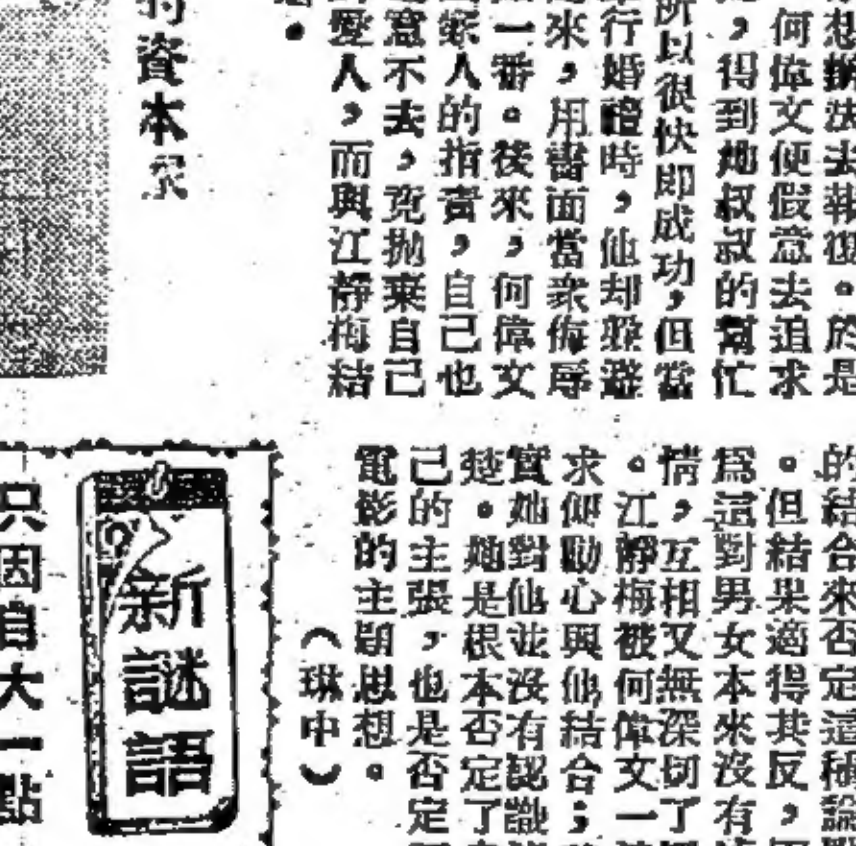 想辦法去報復。於是
何偉文便假意去追求
,得到她叔叔的幫忙
所以很快即成功,但當
行婚禮時,他却躲避
來,用書面當衆侮辱
一番。後來,何偉文
家人的指責,自己也
意不去,竟抛棄自己
愛人,而與江靜梅結
的結合來否定這種論
。但結果適得其反,
爲這對男女本來沒有
情,互相又無深切了
。江靜梅被何偉文一
求便動心與他結合;
實她對他並沒有認識
楚。她是根本否定了
己的主張,也是否定
電影的主題思想。
(琳中)
的資本家
新謎語
只因自大一點